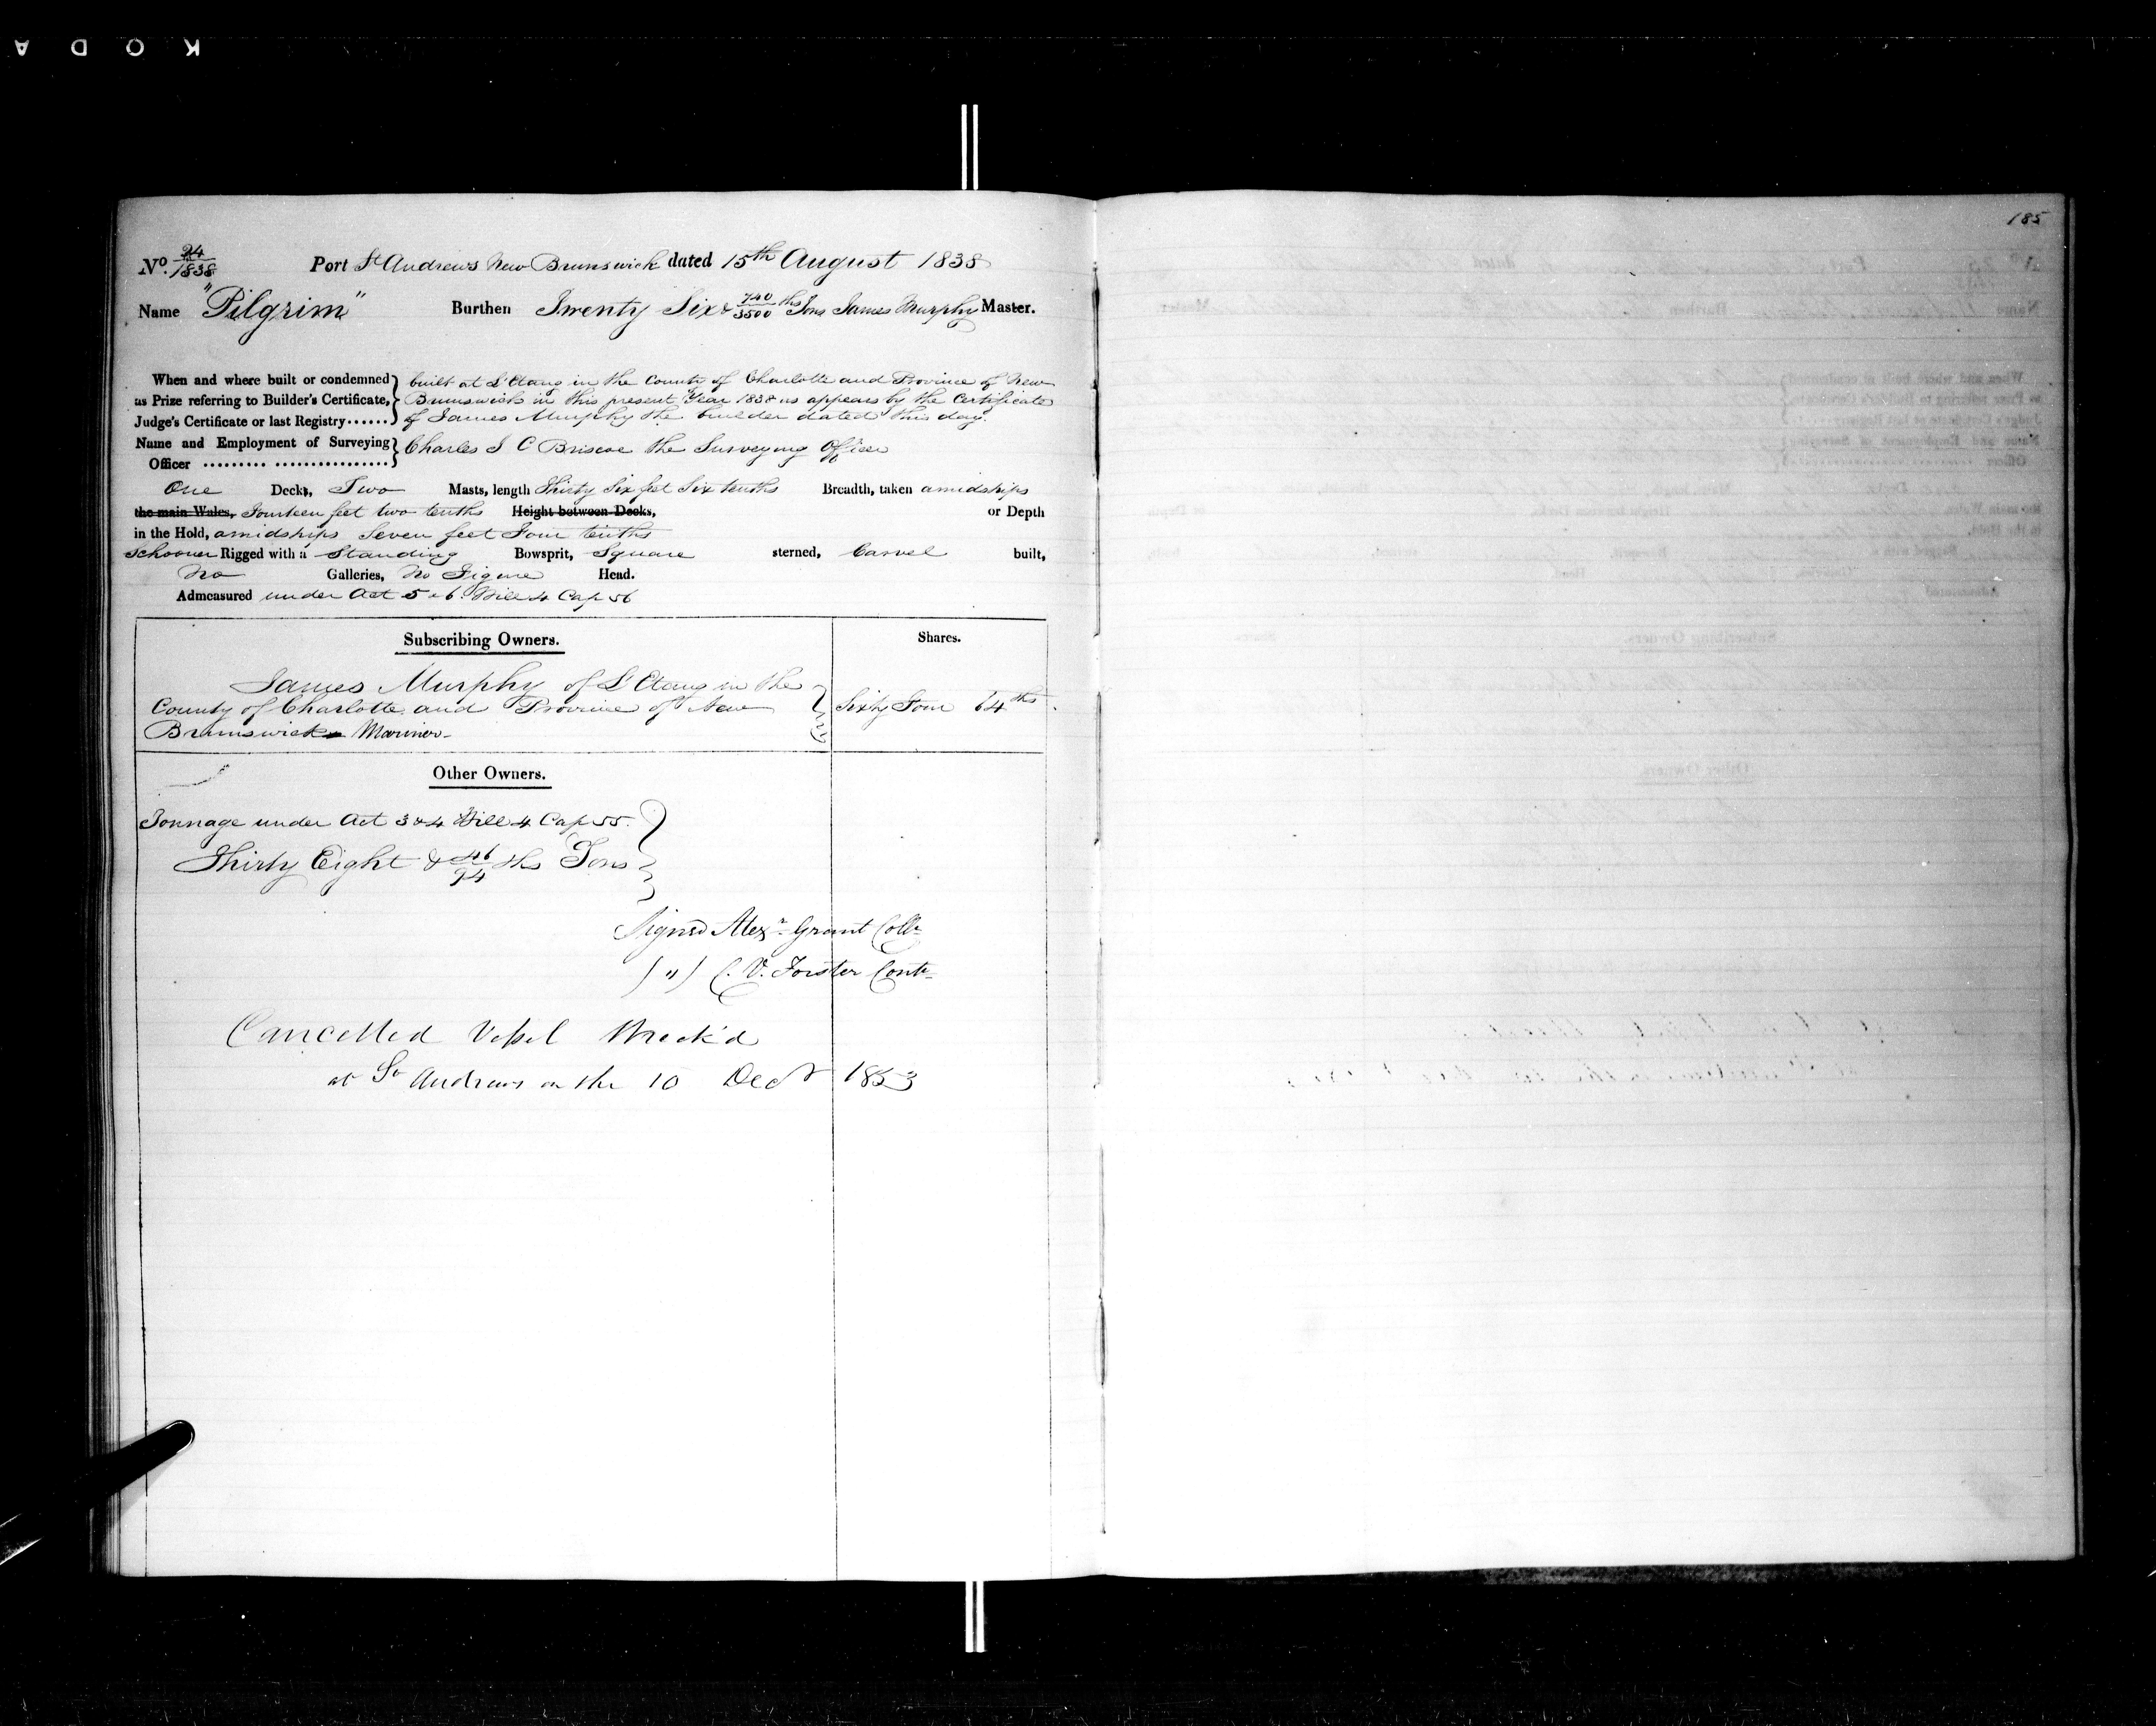 KODA
185
No. 24/1838 Port St Andrews New Brunswick dated 15th August 1838
Name "Pilgrim" Burthen Twenty Six & 740/3500 ths Tons James Murphy Master.
When and where built or condemned built at L'Etang in the County of Charlotte and Province of New
as Prize referring to Builder's Certificate, Brunswick in this present Year 1838 as appears by the Certificate
Judge's Certificate or last Registry...... of James Murphy the builder dated this day.
Name and Employment of Surveying Charles J C Briscoe the Surveying Officer
Officer ......... ................
One Decks, Two Masts, length Thirty Six feet Six tenths Breadth, taken amidships
the main Wales, Fourteen feet two tenths Height between Decks, or Depth
in the Hold, amidships Seven feet Four tenths
Schooner Rigged with a Standing Bowsprit, Square sterned, Carvel built,
No Galleries, No Figure Head.
Admeasured under Act 5 & 6 Will 4 Cap 56
Subscribing Owners. Shares.
James Murphy of L'Etang in the
County of Charlotte and Province of New Sixty Four 64ths
Brunswick Mariner
Other Owners.
Tonnage under Act 3 & 4 Will 4 Cap 55.
Thirty Eight & 46/94 ths Tons
Signed Alexr Grant Collr
(") C. V. Forster Contr
Cancelled Vessel Wreck'd
at St Andrews on the 10 Decr 1853